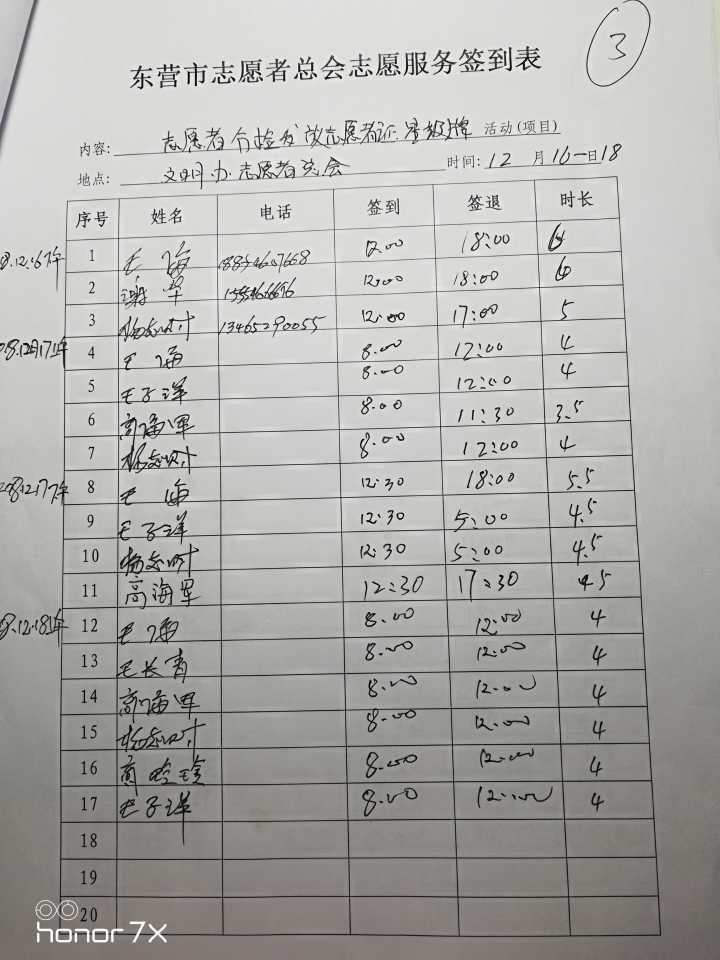 3
东营市志愿者总会志愿服务签到表
内容: 志愿者分捡发放志愿者证.星级牌 活动(项目)
地点: 文明办志愿者总会 时间: 12月16—日18
序号 姓名 电话 签到 签退 时长
1 毛海 12.00 18:00 6
2 谢军 12:00 18:00 6
3 杨志时 13465290055 12:00 17:00 5
4 毛海 8.00 12:00 4
5 毛子洋 8.00 12:00 4
6 高海军 8.00 11:30 3.5
7 杨志时 8.00 12:00 4
8 毛海 12:30 18:00 5.5
9 毛子洋 12:30 5:00 4.5
10 杨志时 12:30 5:00 4.5
11 高海军 12:30 17:30 4.5
12 毛海 8.00 12:00 4
13 毛长青 8.00 12:00 4
14 高海军 8.00 12:00 4
15 杨志时 8.00 12.00 4
16 8.00 12:00 4
17 毛子洋 8.00 12:00 4
18
19
20
honor 7X